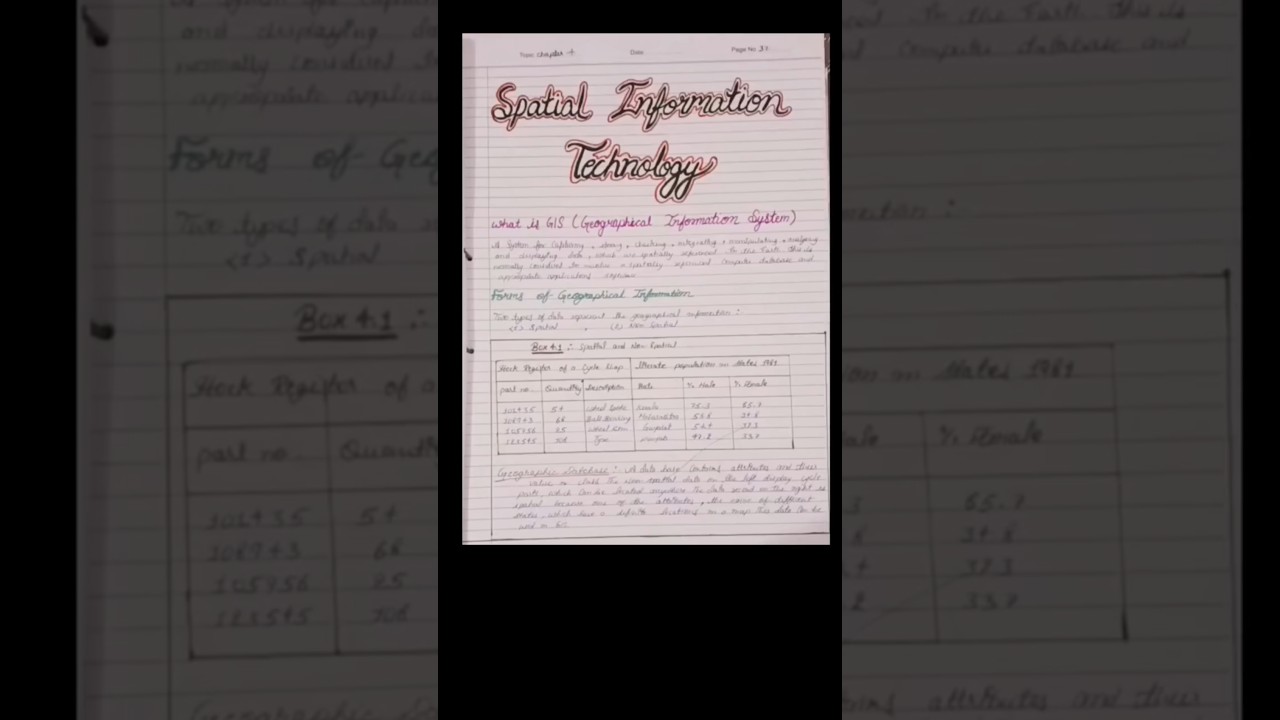 Topic Chapter 4 Date Page No. 32
Spatial Information
Technology
What is GIS (Geographical Information System)
A System for Capturing, storing, checking, integrating, manipulating, analysing
and displaying data, which are spatially referenced to the Earth. This is
normally considered to involve a spatially referenced Computer database and
appropriate applications
Forms of Geographical Information
Two types of data represent the geographical information :
<1> Spatial , (2) Non Spatial
Box 4.1 :- Spatial and Non Spatial
Stock Register of a Cycle Shop Literate population in States 1981
part no. Quantity Description State % Male % Female
101435 54 Wheel Kerala 75.3 65.7
108943 68 Ball Bearing Maharashtra 58.8 34.8
105956 25 Wheel Rim Gujarat 54.4 32.3
123545 108 Tyre Punjab 47.2 33.7
Geographic Database :- A data base contains attributes and their
value or class. The non spatial data on the left display cycle
parts, which can be located anywhere. The data record on the right is
spatial because one of the attributes, the name of different
states, which have a definite locations in a map. This data can be
used in GIS.